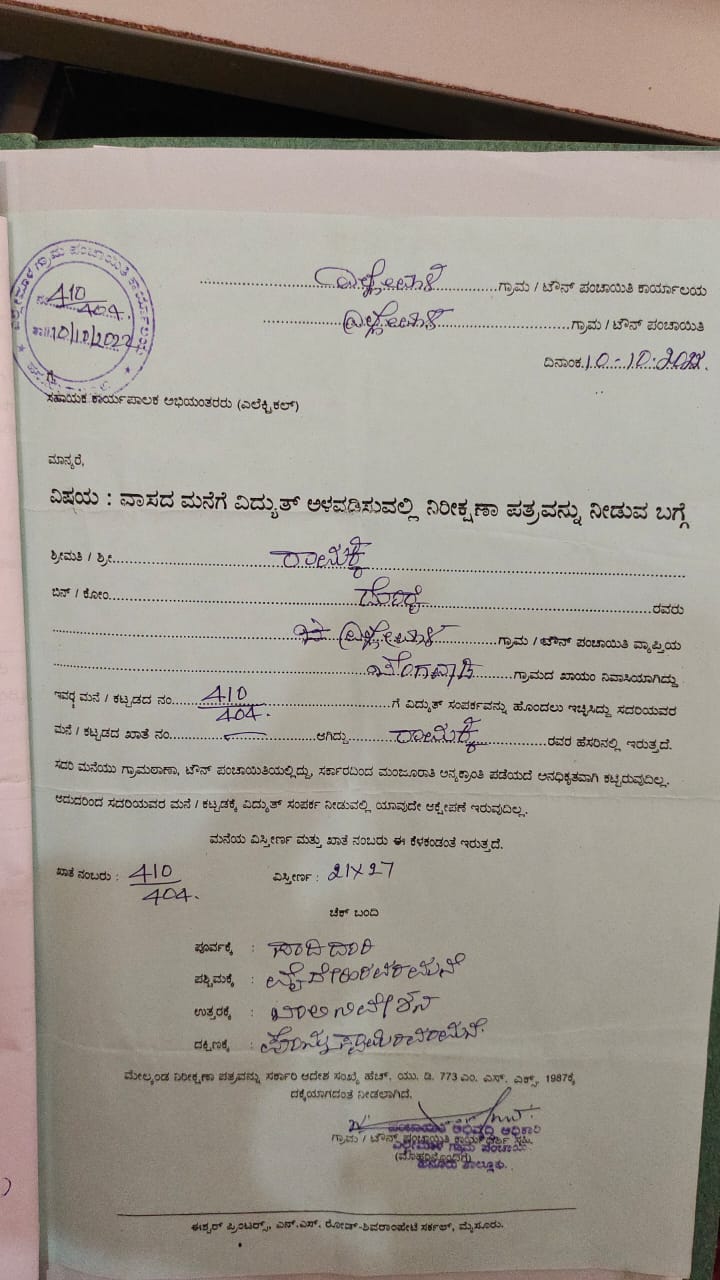 ಗ್ರಾಮ ಪಂಚಾಯಿತಿ ಕಾರ್ಯಾಲಯ
ನಂ 410/404.
ತಾ 10/10/2022
ಗ್ರಾಮ / ಟೌನ್ ಪಂಚಾಯಿತಿ ಕಾರ್ಯಾಲಯ
ಗ್ರಾಮ / ಟೌನ್ ಪಂಚಾಯಿತಿ
ದಿನಾಂಕ 10-10-2022
ಗೆ,
ಸಹಾಯಕ ಕಾರ್ಯಪಾಲಕ ಅಭಿಯಂತರರು (ಎಲೆಕ್ಟ್ರಿಕಲ್)
ಮಾನ್ಯರೆ,
ವಿಷಯ : ವಾಸದ ಮನೆಗೆ ವಿದ್ಯುತ್ ಅಳವಡಿಸುವಲ್ಲಿ ನಿರೀಕ್ಷಣಾ ಪತ್ರವನ್ನು ನೀಡುವ ಬಗ್ಗೆ
ಶ್ರೀಮತಿ / ಶ್ರೀ
ಬಿನ್ / ಕೋಂ ರವರು
ಗ್ರಾಮ / ಟೌನ್ ಪಂಚಾಯಿತಿ ವ್ಯಾಪ್ತಿಯ
ಗ್ರಾಮದ ಖಾಯಂ ನಿವಾಸಿಯಾಗಿದ್ದು
ಇವರ ಮನೆ / ಕಟ್ಟಡದ ನಂ. 410/404. ಗೆ ವಿದ್ಯುತ್ ಸಂಪರ್ಕವನ್ನು ಹೊಂದಲು ಇಚ್ಛಿಸಿದ್ದು ಸದರಿಯವರ
ಮನೆ / ಕಟ್ಟಡದ ಖಾತೆ ನಂ. ಆಗಿದ್ದು ರವರ ಹೆಸರಿನಲ್ಲಿ ಇರುತ್ತದೆ.
ಸದರಿ ಮನೆಯು ಗ್ರಾಮಠಾಣಾ, ಟೌನ್ ಪಂಚಾಯಿತಿಯಲ್ಲಿದ್ದು, ಸರ್ಕಾರದಿಂದ ಮಂಜೂರಾತಿ ಅನ್ಯಕ್ರಾಂತಿ ಪಡೆಯದೆ ಅನಧಿಕೃತವಾಗಿ ಕಟ್ಟಿರುವುದಿಲ್ಲ.
ಆದುದರಿಂದ ಸದರಿಯವರ ಮನೆ / ಕಟ್ಟಡಕ್ಕೆ ವಿದ್ಯುತ್ ಸಂಪರ್ಕ ನೀಡುವಲ್ಲಿ ಯಾವುದೇ ಆಕ್ಷೇಪಣೆ ಇರುವುದಿಲ್ಲ.
ಮನೆಯ ವಿಸ್ತೀರ್ಣ ಮತ್ತು ಖಾತೆ ನಂಬರು ಈ ಕೆಳಕಂಡಂತೆ ಇರುತ್ತದೆ.
ಖಾತೆ ನಂಬರು : 410/404. ವಿಸ್ತೀರ್ಣ : 21x27
ಚೆಕ್ ಬಂದಿ
ಪೂರ್ವಕ್ಕೆ :
ಪಶ್ಚಿಮಕ್ಕೆ :
ಉತ್ತರಕ್ಕೆ : ಖಾಲಿ ನಿವೇಶನ
ದಕ್ಷಿಣಕ್ಕೆ :
ಮೇಲ್ಕಂಡ ನಿರೀಕ್ಷಣಾ ಪತ್ರವನ್ನು ಸರ್ಕಾರಿ ಆದೇಶ ಸಂಖ್ಯೆ ಹೆಚ್. ಯು. ಡಿ. 773 ಎಂ. ಎಸ್. ಎಕ್ಸ್. 1987ಕ್ಕೆ
ದಕ್ಕೆಯಾಗದಂತೆ ನೀಡಲಾಗಿದೆ.
ಪಂಚಾಯಿತಿ ಅಭಿವೃದ್ಧಿ ಅಧಿಕಾರಿ
ಗ್ರಾಮ / ಟೌನ್ ಪಂಚಾಯಿತಿ ಕಾರ್ಯದರ್ಶಿ ಸಹಿ.
ಗ್ರಾಮ ಪಂಚಾಯಿತಿ
(ಮೊಹರಿನೊಂದಿಗೆ)
ಹನೂರು ತಾಲ್ಲೂಕು.
ಈಶ್ವರ್ ಪ್ರಿಂಟರ್ಸ್, ಎನ್.ಎಸ್. ರೋಡ್-ಶಿವರಾಂಪೇಟೆ ಸರ್ಕಲ್, ಮೈಸೂರು.